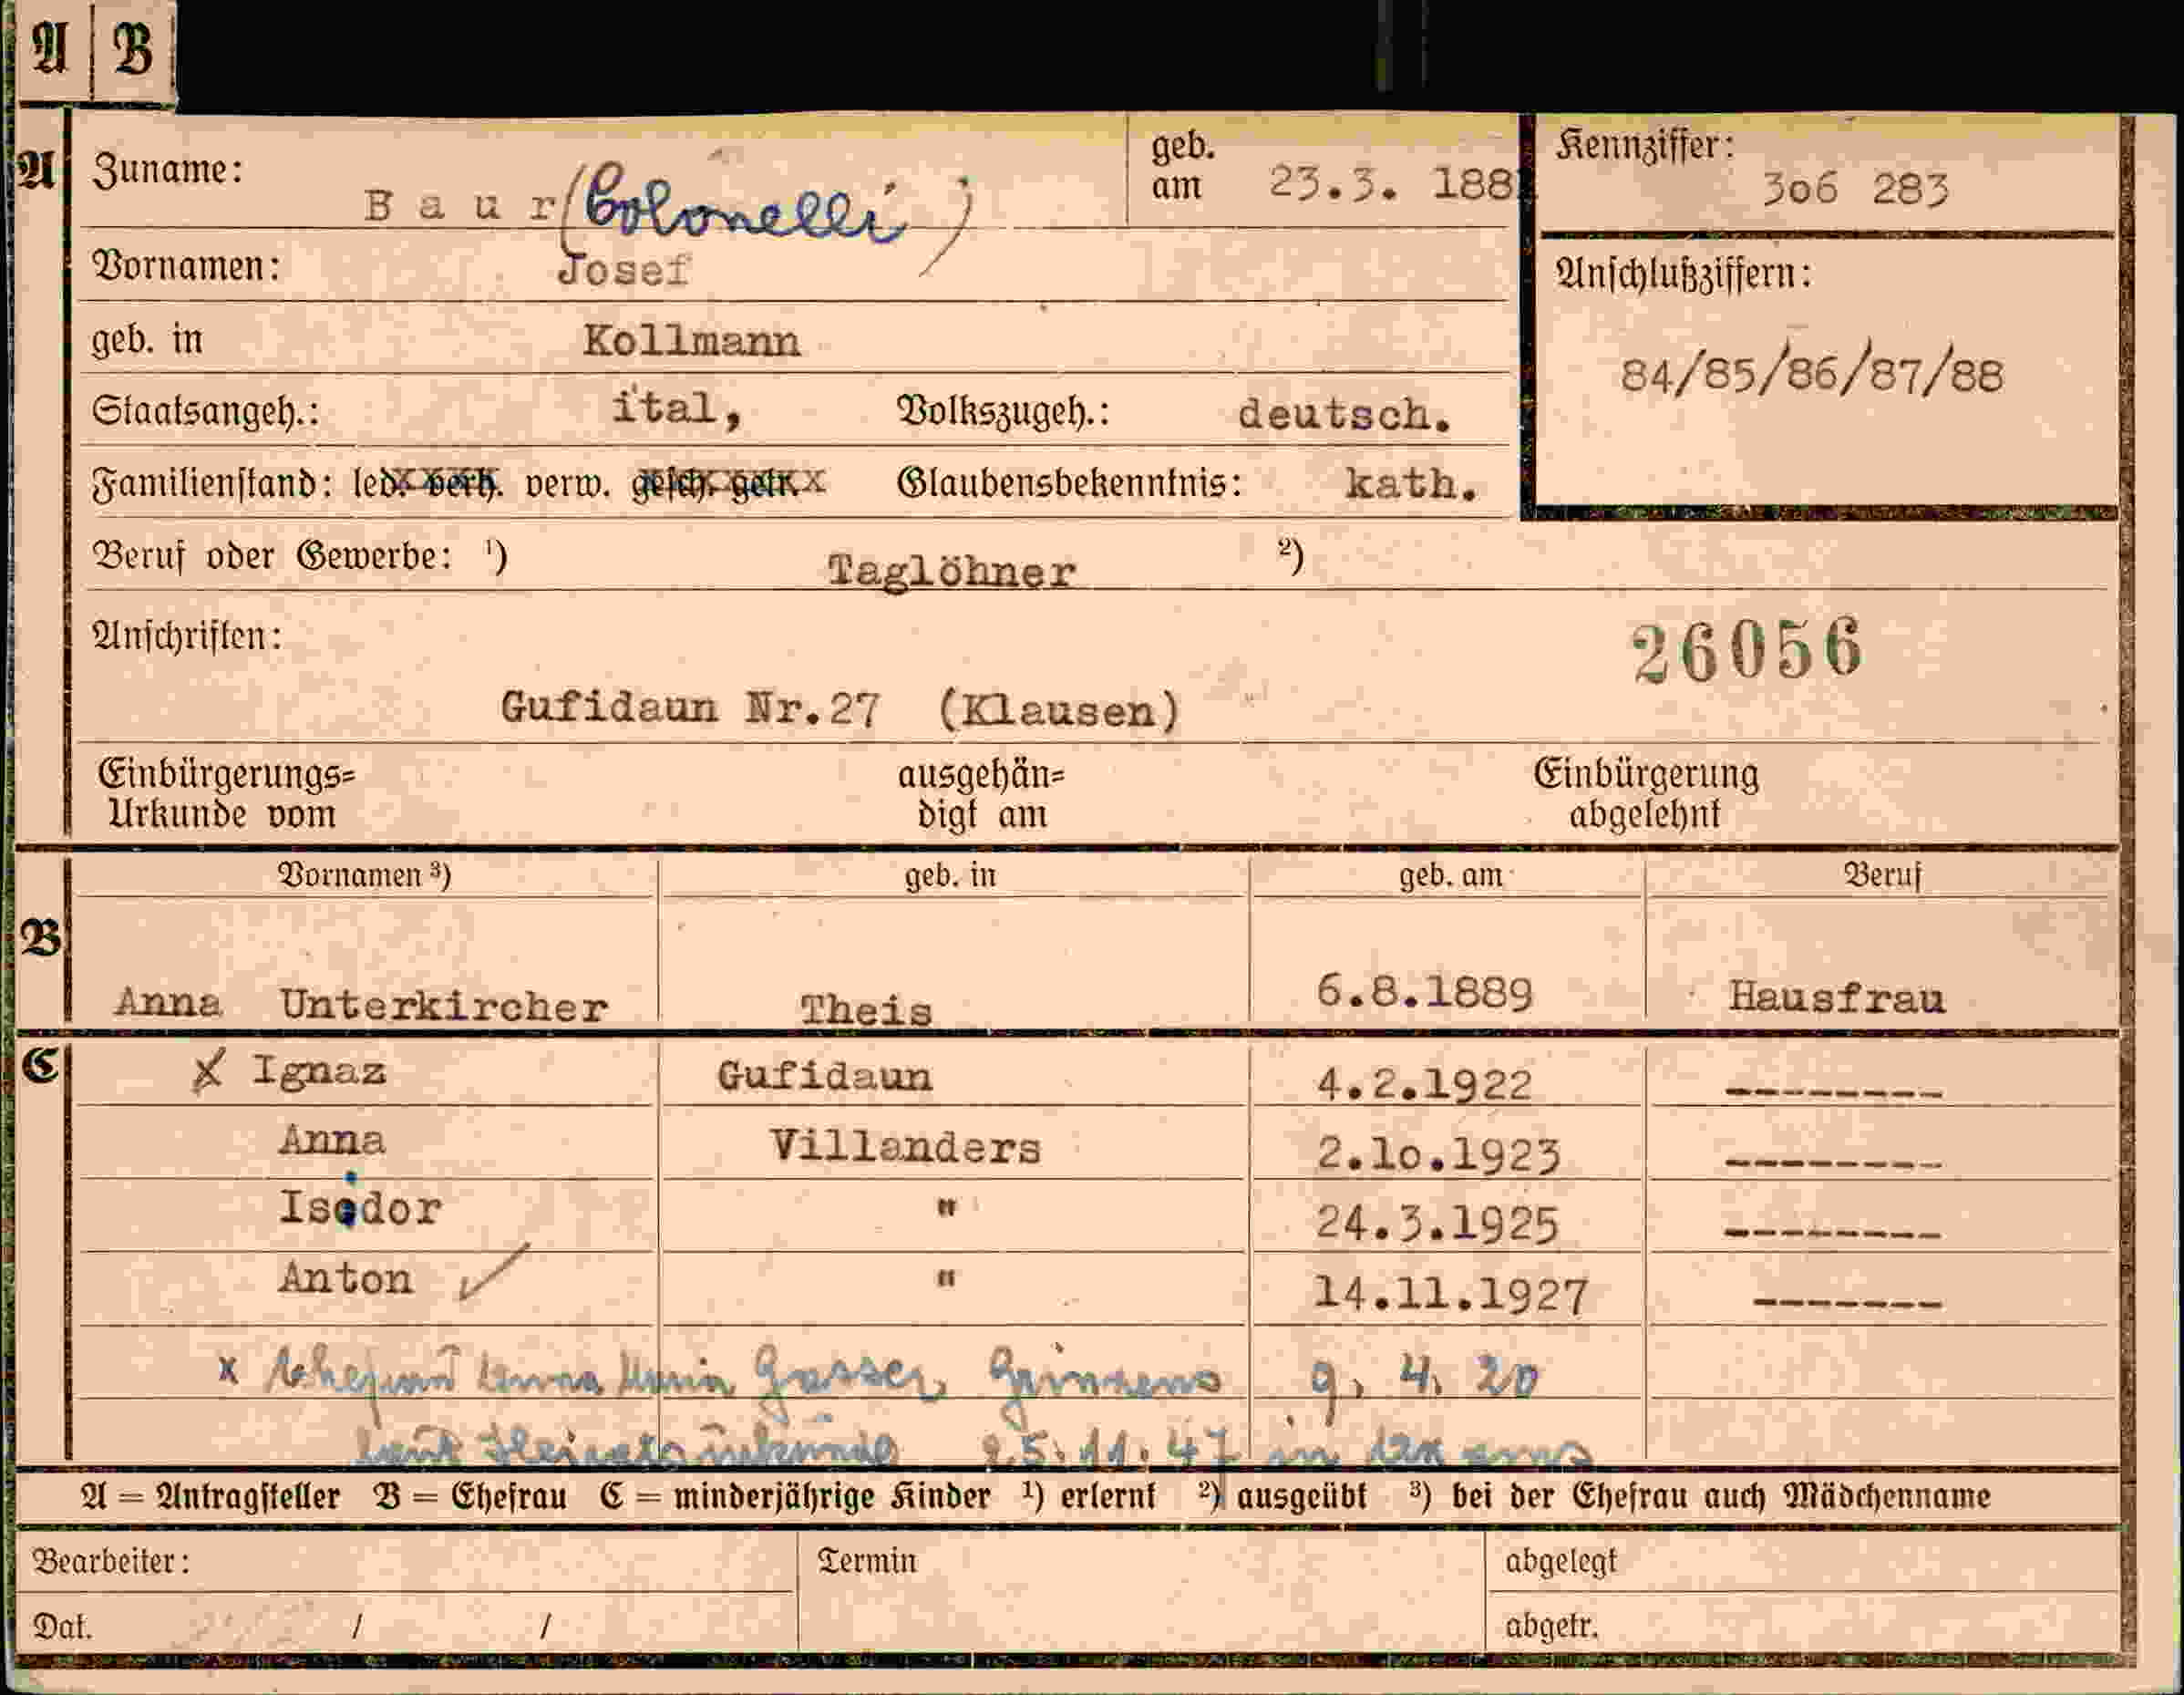 A B
A Zuname: Baur (Colonelli) geb. am 23.3. 188 Kennziffer: 3o6 283
Vornamen: Josef
Anschlußziffern:
geb. in Kollmann
84/85/86/87/88
Staatsangeh.: ital, Volkszugeh.: deutsch.
Familienstand: led. verh. verw. gesch. getr. Glaubensbekenntnis: kath.
Beruf oder Gewerbe: ¹) Taglöhner ²)
Anschriften: 26056
Gufidaun Nr.27 (Klausen)
Einbürgerungs= ausgehän= Einbürgerung
Urkunde vom digt am abgelehnt
Vornamen ³) geb. in geb. am Beruf
B
Anna Unterkircher Theis 6.8.1889 Hausfrau
C x Ignaz Gufidaun 4.2.1922 --------
Anna Villanders 2.1o.1923 --------
Isidor " 24.3.1925 --------
Anton ✓ " 14.11.1927 -------
x Anna Maria Gasser 9. 4. 20
laut Heiratsurkunde 25.11.47 in
A = Antragsteller B = Ehefrau C = minderjährige Kinder ¹) erlernt ²) ausgeübt ³) bei der Ehefrau auch Mädchenname
Bearbeiter: Termin abgelegt
Dat. / / abgetr.